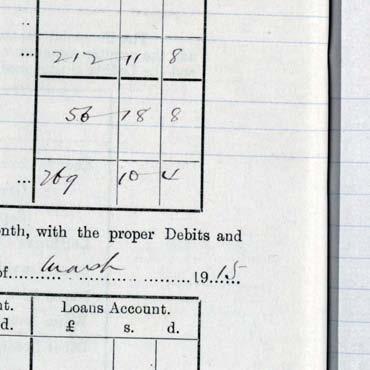 ..
... 212 11 8
56 18 8
... 269 10 4
onth, with the proper Debits and
of ..... March ..... 1915
nt. Loans Account.
d. £ s. d.